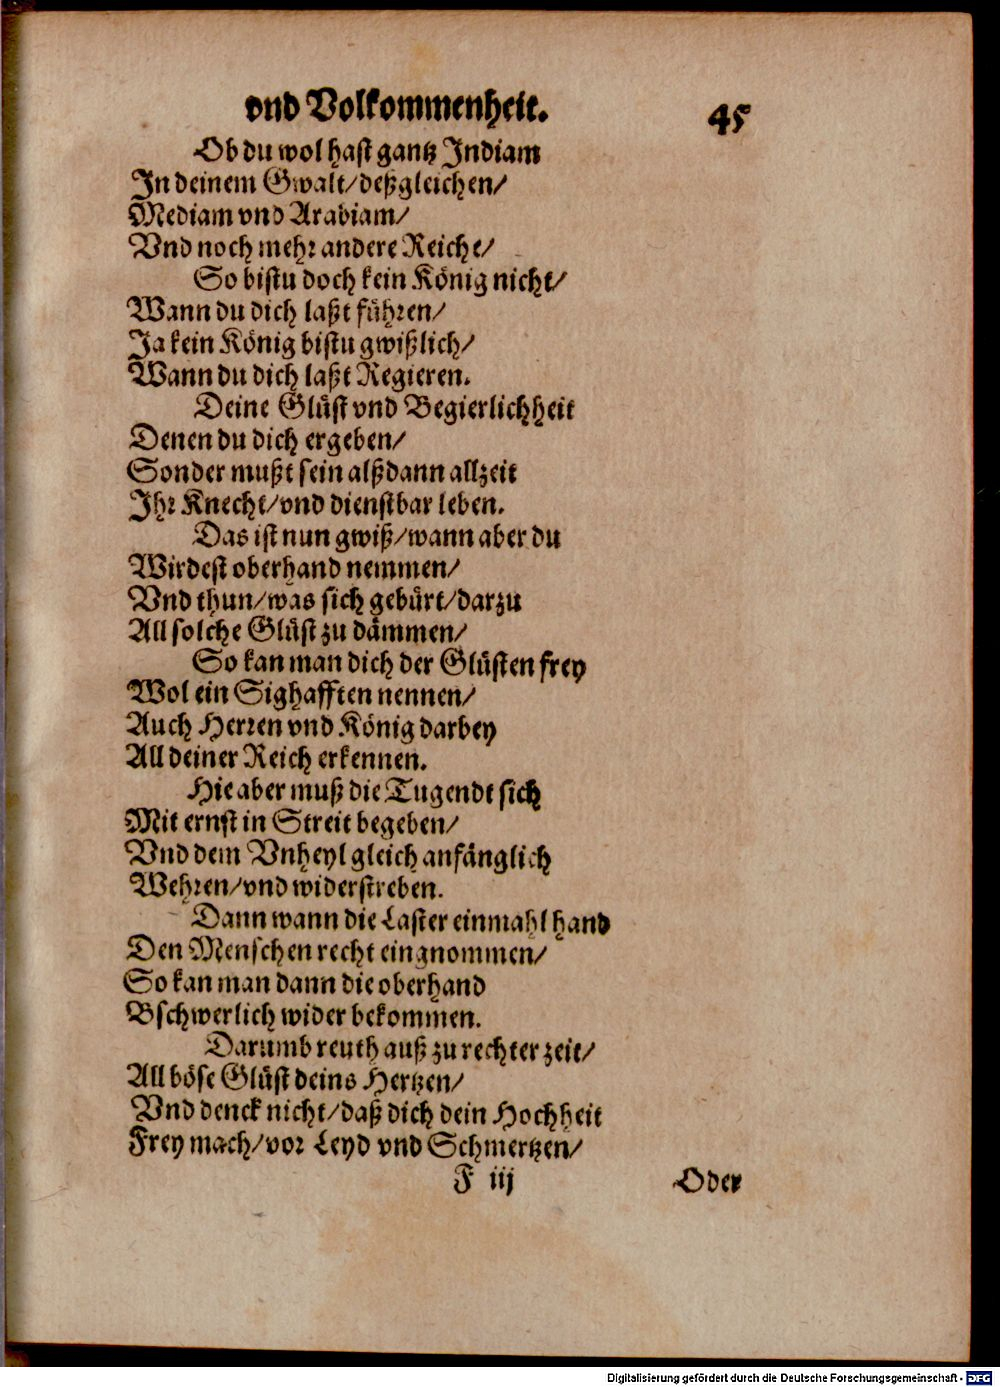 vnd Volkommenheit. 45
Ob du wol hast gantz Indiam
In deinem Gwalt/deßgleichen/
Mediam vnd Arabiam/
Vnd noch mehr andere Reiche/
So bistu doch kein König nicht/
Wann du dich laßt führen/
Ja kein König bistu gwißlich/
Wann du dich laßt Regieren.
Deine Glüst vnd Begierlichheit
Denen du dich ergeben/
Sonder mußt sein alßdann allzeit
Ihr Knecht/vnd dienstbar leben.
Das ist nun gwiß/wann aber du
Wirdest oberhand nemmen/
Vnd thun/was sich gebürt/darzu
All solche Glüst zu dämmen/
So kan man dich der Glüsten frey
Wol ein Sighafften nennen/
Auch Herren vnd König darbey
All deiner Reich erkennen.
Hie aber muß die Tugendt sich
Mit ernst in Streit begeben/
Vnd dem Vnheyl gleich anfänglich
Wehren/vnd widerstreben.
Dann wann die Laster einmahl hand
Den Menschen recht eingnommen/
So kan man dann die oberhand
Bschwerlich wider bekommen.
Darumb reuth auß zu rechter zeit/
All böse Glüst deins Hertzen/
Vnd denck nicht/daß dich dein Hochheit
Frey mach/vor Leyd vnd Schmertzen/
F iij Oder
Digitalisierung gefördert durch die Deutsche Forschungsgemeinschaft - DFG